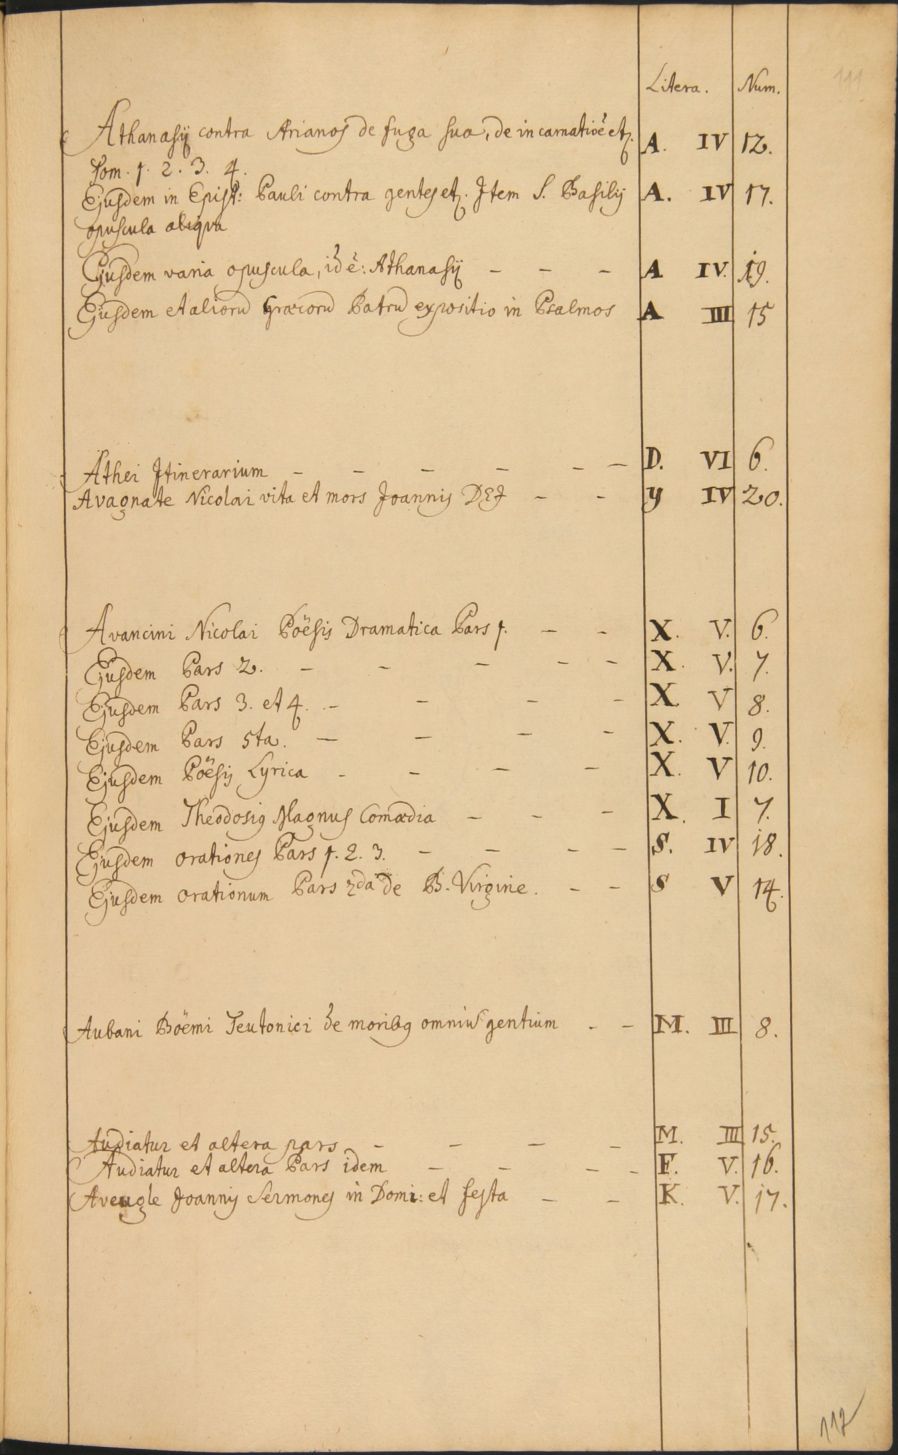 Litera. Num.
111
Athanasij contra Arianos de fuga sua, de incarnatiōe etc. A. IV 12.
Tom. 1. 2. 3. 4.
Ejusdem in Epist: Pauli contra gentes etc. Item S. Basilij A. IV 17.
opuscula aliqua
Ejusdem varia opuscula, id ē: Athanasij – – – A IV. 19.
Ejusdem et aliorū Græcorū Patrū expositio in Psalmos A III 15
Athei Itinerarium – – – – – – D. VI 6.
Avagnate Nicolai vita et mors Joannis DEI – – y IV 20.
Avancini Nicolai Poësis Dramatica Pars 1. – – X. V. 6.
Ejusdem Pars 2. – – – – – X. V. 7.
Ejusdem Pars 3. et 4. – – – – X. V 8.
Ejusdem Pars 5ta. – – – – X. V. 9.
Ejusdem Poësis Lyrica – – – – X. V 10.
Ejusdem Theodosiq Magnus Comœdia – – – X. I 7.
Ejusdem orationes Pars 1. 2. 3. – – – – S. IV 18.
Ejusdem orationum Pars 2da de B. Virgine. – – S V 14.
Aubani Böemi Teutonici de moribq omniū gentium – – M. III 8.
Audiatur et altera pars – – – – M. III 15.
Audiatur et altera Pars idem – – – – F. V. 16.
Aveugle Joannis Sermones in Domi: et festa – – K. V. 17.
112